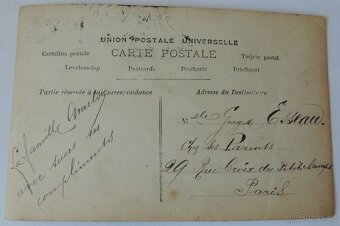 UNION POSTALE UNIVERSELLE
CARTE POSTALE
Cartolina postale
Tarjeta postal
Levelezo-lap
Postcard.
Postkarta
Briefkaart
Partie réservée à la Correspondance
Adresse du Destinataire
La famille
avec tous ses
compliments
Melle
Chez ses Parents
29 Rue Croix des Petits champs
Paris